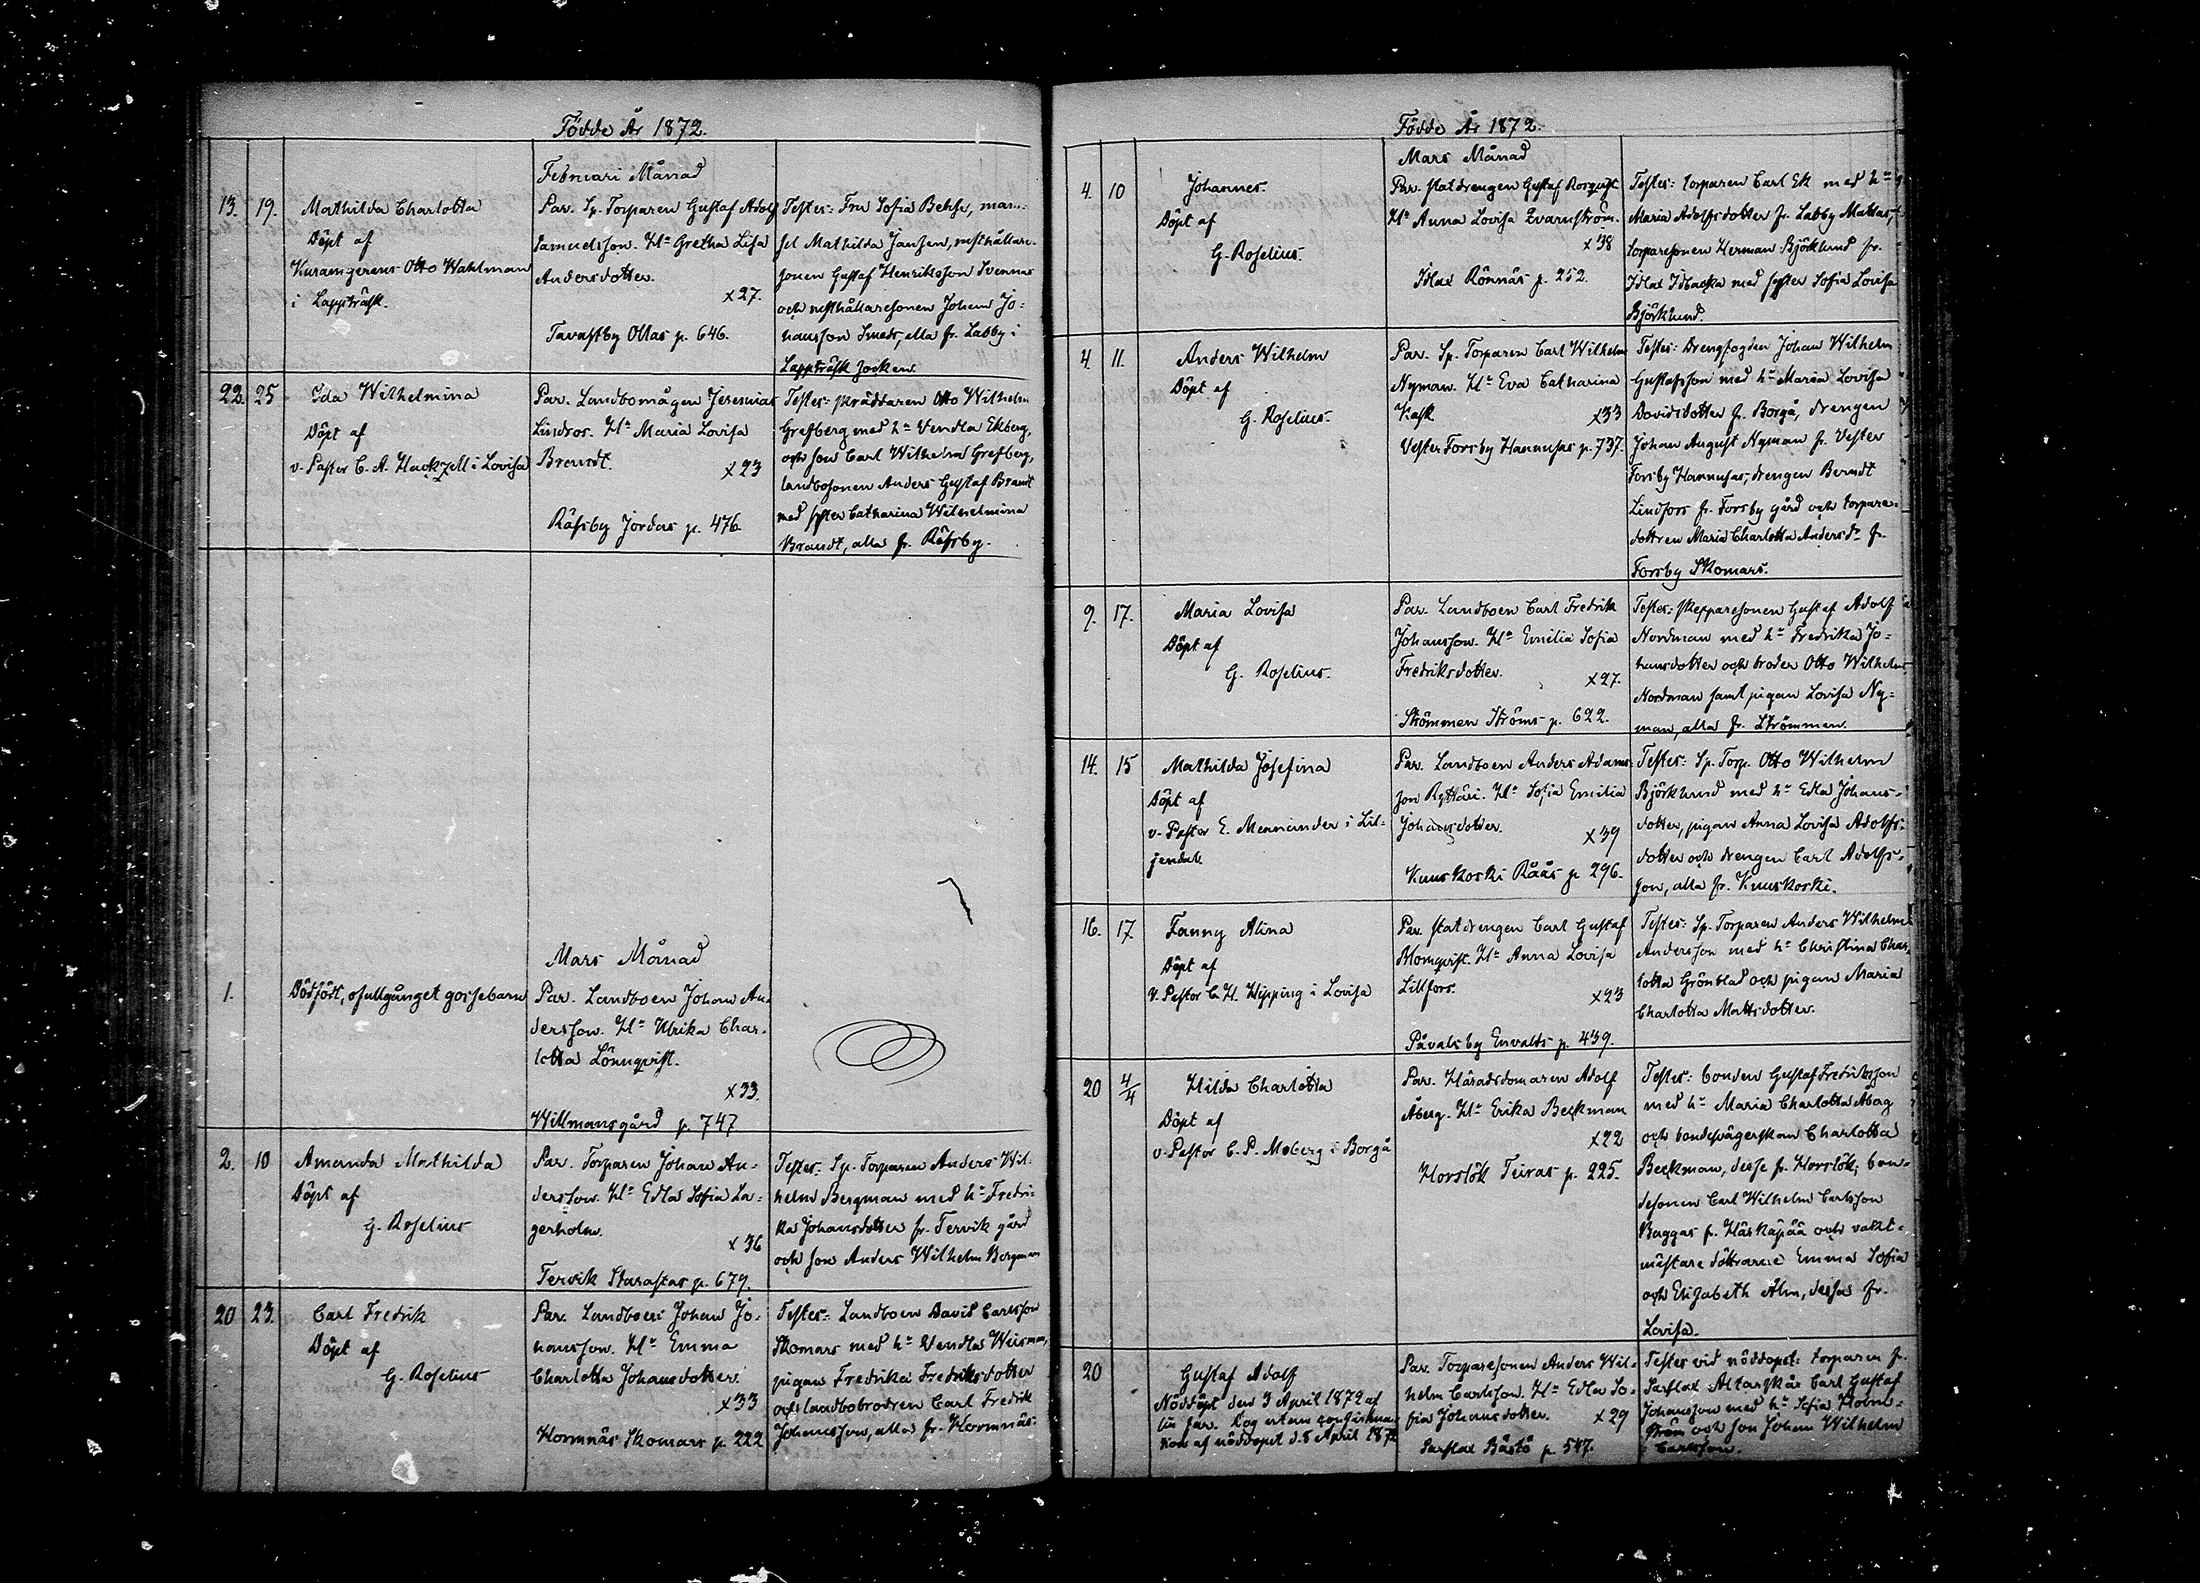 Födde År 1872.
Februari Månad
13. 19. Mathilda Charlotta
Döpt af
Otto Wahlman
i Lappträsk.
Par. Sp. Torparen Gustaf Adolf
Samuelsson. H:u Gretha Lisa
Andersdotter.
x27.
Tavastby Ollas p. 646.
Testes: Fru Sofia Behse, mam-
sel Mathilda Jansen, rusthållare-
sonen Gustaf Henriksson Svennas
och rusthållaresonen Johan Jo-
hansson Smeds, alla fr. Labby i
Lappträsk socken.
22. 25 Ida Wilhelmina
Döpt af
v. Pastor C. A. Hackzell i Lovisa
Par. Landbomågen Jeremias
Lindros. H:u Maria Lovisa
Brandt.
x23
Räfsby Jordas p. 476.
Testes: skräddaren Otto Wilhelm
Grefberg med h:u Vendla Ekberg,
och son Carl Wilhelm Grefberg,
landbosonen Anders Gustaf Brandt
med syster Catharina Wilhelmina
Brandt, alla fr. Räfsby.
Mars Månad
1. Dödfödt, ofullgånget gossebarn
Par. Landboen Johan An-
dersson. H:u Ulrika Char-
lotta Lönnqvist.
x33.
Willmansgård p. 747
2. 10 Amanda Mathilda
Döpt af
G. Roselius
Par. Torparen Johan An-
dersson. H:u Edla Sofia La-
gerholm.
x36
Tervik Starastas p. 679.
Testes: Sp. Torparen Anders Wil-
helm Bergman med h:u Fredri-
ka Johansdotter fr. Tervik gård
och son Anders Wilhelm Bergman
20 23. Carl Fredrik
Döpt af
G. Roselius
Par. Landboen Johan Jo-
hansson. H:u Emma
Charlotta Johansdotter.
x33
Hormnäs Skomars p. 222
Testes: Landboen David Carlsson
Skomars med h:u Vendla Weisman,
pigan Fredrika Fredriksdotter
och landbobrodren Carl Fredrik
Johansson, alla fr. Hormnäs.
Födde År 1872.
Mars Månad
4. 10 Johannes.
Döpt af
G. Roselius.
Par. statdrengen Gustaf Rosqvist
H:u Anna Lovisa Qvarnström.
x38
Islax Rönnäs p. 252.
Testes: torparen Carl Ek med h:u
Maria Adolfsdotter fr. Labby Mattas,
torparesonen Herman Björklund fr.
Islax Idbacka med syster Sofia Lovisa
Björklund.
4. 11. Anders Wilhelm
Döpt af
G. Roselius.
Par. Sp. Torparen Carl Wilhelm
Nyman. H:u Eva Catharina
Kask
x33
Vester Forsby Hannusas p. 737.
Testes: Drengfogden Johan Wilhelm
Gustafsson med h:u Maria Lovisa
Davidsdotter fr. Borgå, drengen
Johan August Nyman fr. Vester
Forsby Hannusas; drengen Berndt
Lindfors fr. Forsby gård och torpare-
dottren Maria Charlotta Andersd:r fr.
Forsby Skomars.
9. 17. Maria Lovisa
Döpt af
G. Roselius.
Par. Landboen Carl Fredrik
Johansson. H:u Emilia Sofia
Fredriksdotter.
x27.
Strömmen Ströms p. 622.
Testes: skepparesonen Gustaf Adolf
Nordman med h:u Fredrika Jo-
hansdotter och broder Otto Wilhelm
Nordman samt pigan Lovisa Ny-
man, alla fr. Strömmen.
14. 15 Mathilda Josefina
Döpt af
v. Pastor E. Menander i Lil-
jendal.
Par. Landboen Anders Adams-
son Ryttäri. H:u Sofia Emilia
Johansdotter.
x39
Kuuskoski Råås p 296.
Testes: Sp. Torp. Otto Wilhelm
Björklund med h:u Edla Johans-
dotter, pigan Anna Lovisa Adolfs-
dotter och drengen Carl Adolfs-
son, alla fr. Kuuskoski.
16. 17. Fanny Alina
Döpt af
V. Pastor C. H. Hipping i Lovisa
Par. statdrengen Carl Gustaf
Blomqvist. H:u Anna Lovisa
Lillfors.
x23
Påvalsby Envalds p. 439.
Testes: Sp. Torparen Anders Wilhelm
Andersson med h:u Christina Char-
lotta Grönblad och pigan Maria
Charlotta Mattsdotter.
20 4/4 Hilda Charlotta
Döpt af
v. Pastor C. P. Moberg i Borgå
Par. Häradsdomaren Adolf
Åberg. H:u Erika Beckman
x22
Horslök Teiras p. 225.
Testes: bonden Gustaf Fredriksson
med h:u Maria Charlotta Åberg
och bondesvägerskan Charlotta
Beckman, desse fr. Horslök; bon-
desonen Carl Wilhelm Carlsson
Baggas fr. Härkäpää och vakt-
mästare döttrarne Emma Sofia
och Elizabeth Alm, dessa fr.
Lovisa.
20 Gustaf Adolf
Nöddöpt den 3 April 1872 af
sin far. Dog utan confirma-
tion af nöddopet d. 8 April 1872
Par. Torparesonen Anders Wil-
helm Carlsson. H:u Edla So-
fia Johansdotter. x29
Sarflax Båstö p. 547.
Testes vid nöddopet: torparen fr.
Sarflax Altarskär Carl Gustaf
Johansson med h:u Sofia Holm-
ström och son Johan Wilhelm
Carlsson.